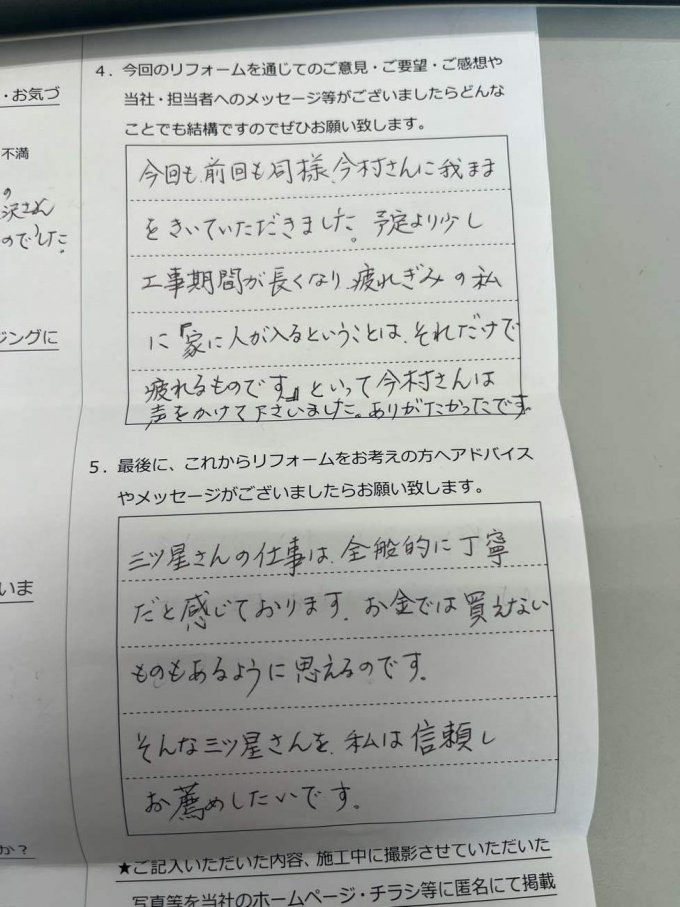 ・お気づ
不満
の
沢さん
ので)した。
ジングに
いま
か？
4．今回のリフォームを通じてのご意見・ご要望・ご感想や
当社・担当者へのメッセージ等がございましたらどんな
ことでも結構ですのでぜひお願い致します。
今回も、前回も同様、今村さんに我まま
をきいていただきました。予定より少し
工事期間が長くなり、疲れぎみの私
に『家に人が入るということは、それだけで
疲れるものです』といって今村さんは
声をかけて下さいました。ありがたかったです。
5．最後に、これからリフォームをお考えの方へアドバイス
やメッセージがございましたらお願い致します。
三ツ星さんの仕事は、全般的に丁寧
だと感じております。お金では買えない
ものもあるように思えるのです。
そんな三ツ星さんを、私は信頼し
お薦めしたいです。
★ご記入いただいた内容、施工中に撮影させていただいた
写真等を当社のホームページ・チラシ等に匿名にて掲載